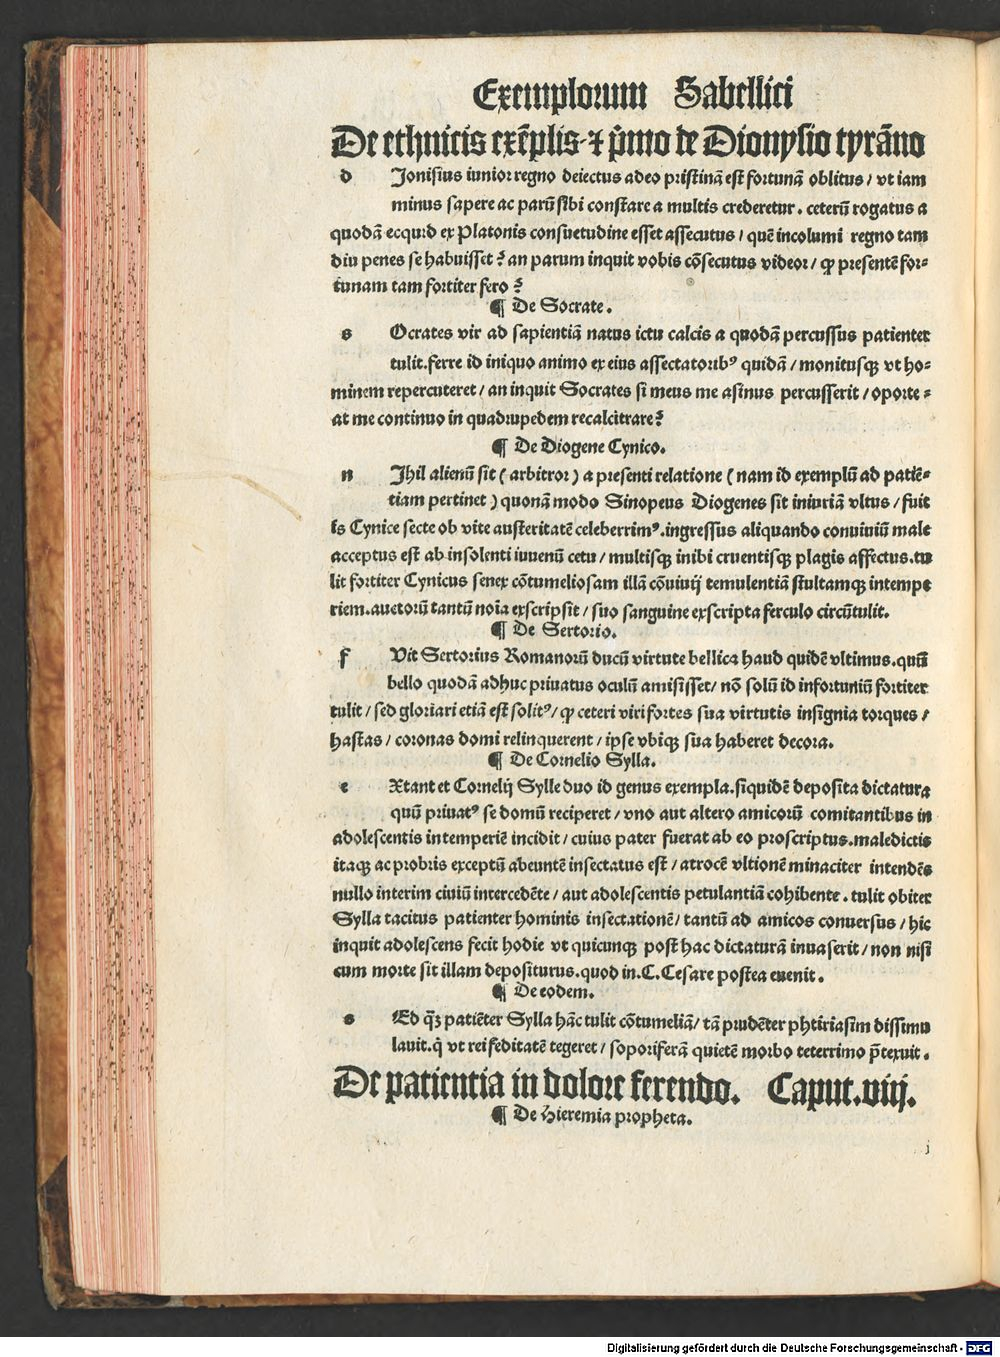 Exemplorum Sabellici
De ethnicis exēplis ⁊ p̄mo de Dionysio tyrāno
d Jonisius iunior regno deiectus adeo pristinā est fortunā oblitus / vt iam
minus sapere ac parū sibi constare a multis crederetur . ceterū rogatus a
quodā ecquid ex Platonis consuetudine esset assecutus / quē incolumi regno tam
diu penes se habuisset ? an parum inquit vobis cōsecutus videor / ꝙ presentē for⸗
tunam tam fortiter fero ?
¶ De Socrate .
s Ocrates vir ad sapientiā natus ictu calcis a quodā percussus patienter
tulit . ferre id iniquo animo ex eius assectatoribꝰ quidā / monitusqꝫ vt ho⸗
minem repercuteret / an inquit Socrates si meus me asinus percusserit / oporte⸗
at me continuo in quadrupedem recalcitrare ?
¶ De Diogene Cynico.
n Jhil alienū sit ( arbitror ) a presenti relatione ( nam id exemplū ad patiē⸗
tiam pertinet ) quonā modo Sinopeus Diogenes sit iniuriā vltus / fuit
is Cynice secte ob vite austeritatē celeberrimꝰ . ingressus aliquando conuiuiū male
acceptus est ab insolenti iuuenū cetu / multisqꝫ inibi cruentisqꝫ plagis affectus . tu
lit fortiter Cynicus senex cōtumeliosam illā cōuiuij temulentiā stultamqꝫ intempe
riem . auctorū tantū noīa exscripsit / suo sanguine exscripta ferculo circūtulit.
¶ De Sertorio.
f Uit Sertorius Romanorū ducū virtute bellica haud quidē vltimus . quū
bello quodā adhuc priuatus oculū amisisset / nō solū id infortuniū fortiter
tulit / sed gloriari etiā est solitꝰ / ꝙ ceteri viri fortes sua virtutis insignia torques /
hastas / coronas domi relinquerent / ipse vbiqꝫ sua haberet decora.
¶ De Cornelio Sylla .
e Xtant et Cornelij Sylle duo id genus exempla . siquidē deposita dictatura
quū priuatꝰ se domū reciperet / vno aut altero amicorū comitantibus in
adolescentis intemperiē incidit / cuius pater fuerat ab eo proscriptus . maledictis
itaqꝫ ac probris exceptū abeuntē insectatus est / atrocē vltionē minaciter intendēs
nullo interim ciuiū intercedēte / aut adolescentis petulantiā cohibente . tulit obiter
Sylla tacitus patienter hominis insectationē / tantū ad amicos conuersus / hic
inquit adolescens fecit hodie vt quicunqꝫ post hac dictaturā inuaserit / non nisi
cum morte sit illam depositurus . quod in . C . Cesare postea euenit .
¶ De eodem .
s Ed q̄ꝫ patiēter Sylla hāc tulit cōtumeliā / tā prudēter phtiriasim dissimu
lauit . q̇ vt rei feditatē tegeret / soporiferā quietē morbo teterrimo p̄texuit .
De patientia in dolore ferendo. Caput . viij.
¶ De Hieremia propheta .
i
Digitalisierung gefördert durch die Deutsche Forschungsgemeinschaft - DFG